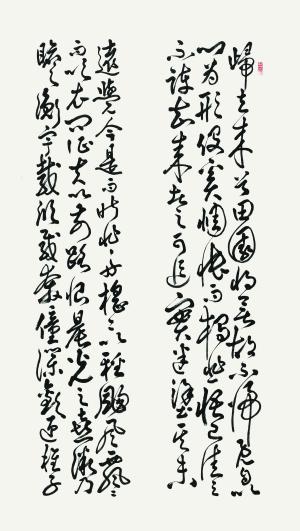 歸去來兮田園將蕪胡不歸既自以
心為形役奚惆悵而獨悲悟已往之
不諫知來者之可追實迷塗其未
遠覺今是而昨非舟搖〻以輕颺風飄〻
而吹衣問征夫以前路恨晨光之熹微乃
瞻衡宇載欣載奔僮僕歡迎稚子